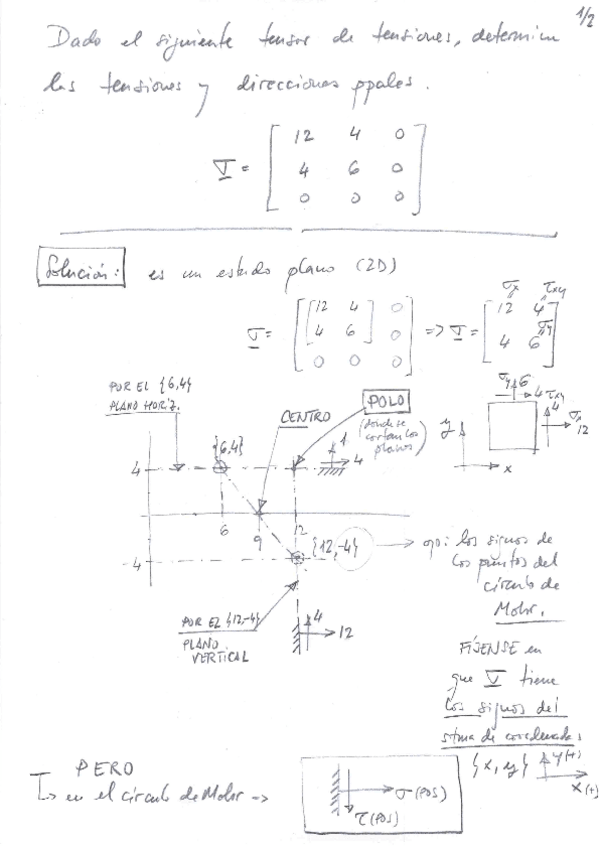 1/2
Dado el siguiente tensor de tensiones, determinen
las tensiones y direcciones ppales.
12 4 0
σ = 4 6 0
0 0 0
Solución: es un estado plano (2D)
σx τxy
σ = [12 4 0 => σ = [12 4
4 6 0 4 6 σy
0 0 0
POR EL {6,4}
PLANO HORIZ.
CENTRO
POLO
(donde se
cortan los
planos)
{6,4}
4
1
4
6
9
12
-4
{12,-4}
σy 6
4 τxy
4
σx
12
y
x
ojo: los signos de
los puntos del
círculo de
Mohr.
POR EL {12,-4}
PLANO
VERTICAL
4
12
FÍJENSE en
que σ tiene
los signos del
sistma de coordenadas
{x, y} y(+)
x(+)
PERO
en el círculo de Mohr ->
σ(POS)
τ(POS)